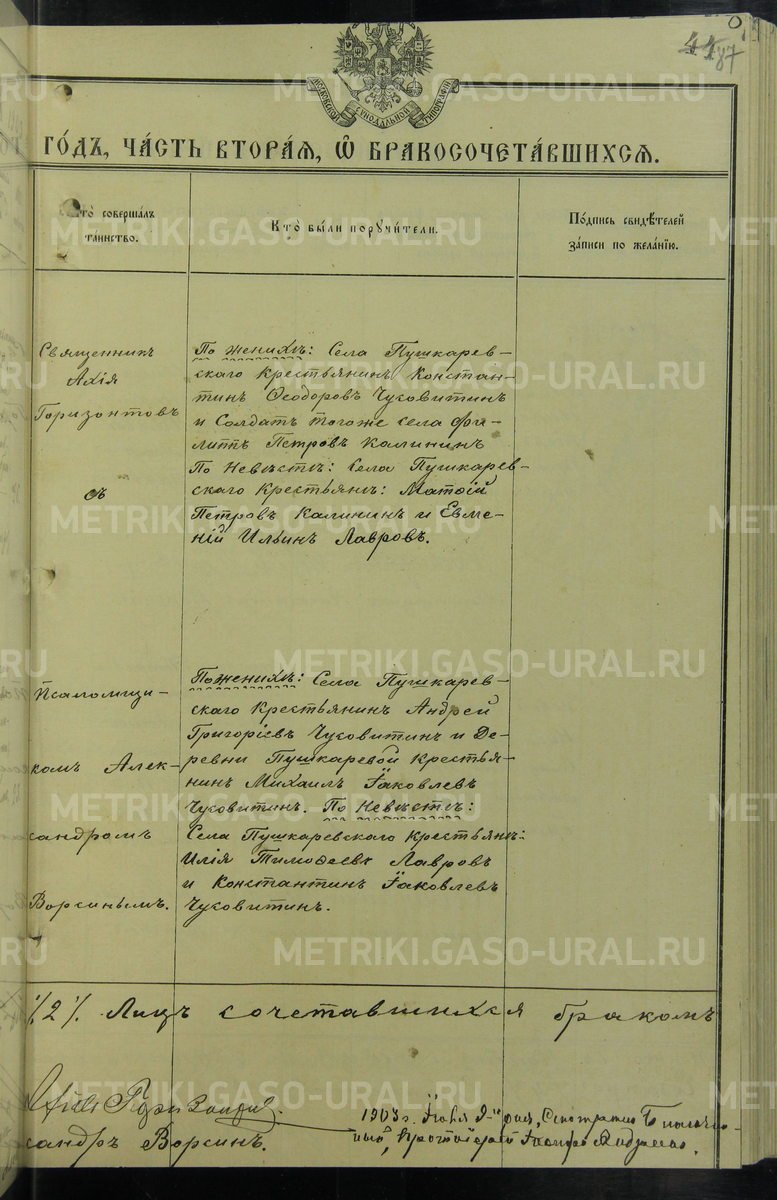 87
МОСКОВСКОЙ СѴНОДАЛЬНОЙ ТИПОГРАФІИ
ГО́ДЪ, ЧА́СТЬ ВТОРА́Я, Ѽ БРАКОСОЧЕТА́ВШИХСЯ.
Кто̀ соверша́лъ
та́инство.
Кто̀ бы́ли порꙋчи́тели.
По́дпись свидѣ́телей
за́писи по жела́нїю.
Священникъ
Ахія
Горизонтовъ
съ
По женихѣ: Села Пушкарев-
скаго крестьянинъ Констан-
тинъ Ѳеодоровъ Чуковитинъ
и Солдатъ тогоже села Фи-
липпъ Петровъ Калининъ
По Невѣстѣ: Села Пушкарев-
скаго Крестьян: Матѳій
Петровъ Калининъ и Евме-
ній Ильинъ Лавровъ.
Псаломщи-
комъ Алек-
сандромъ
Ворсинымъ.
По женихѣ: Села Пушкарев-
скаго Крестьянинъ Андрей
Григоріевъ Чуковитинъ и Де-
ревни Пушкаревой Крестья-
нинъ Михаилъ Іаковлевъ
Чуковитинъ. По Невѣстѣ:
Села Пушкаревскаго Крестьян:
Илія Тимоѳеевъ Лавровъ
и Константинъ Іаковлевъ
Чуковитинъ.
Лицъ сочетавшихся бракомъ
сандръ Ворсинъ.
1903 г. Іюля
METRIKI.GASO-URAL.RU